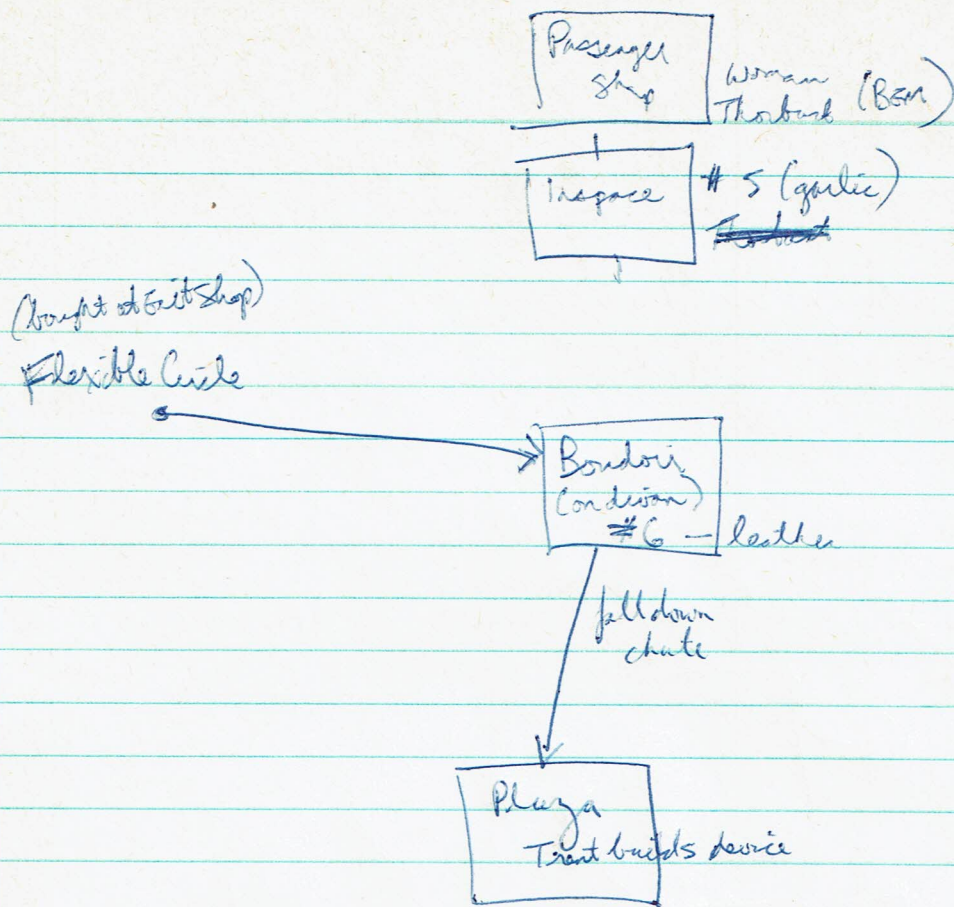 Passenger
Ship
Woman
Thorbast (BEM)
Inspace
# 5 (garlic)
(bought at Exit Shop)
Flexible Circle
Boudoir
(on divan)
#6 — leather
fall down
chute
Plaza
Trent builds device